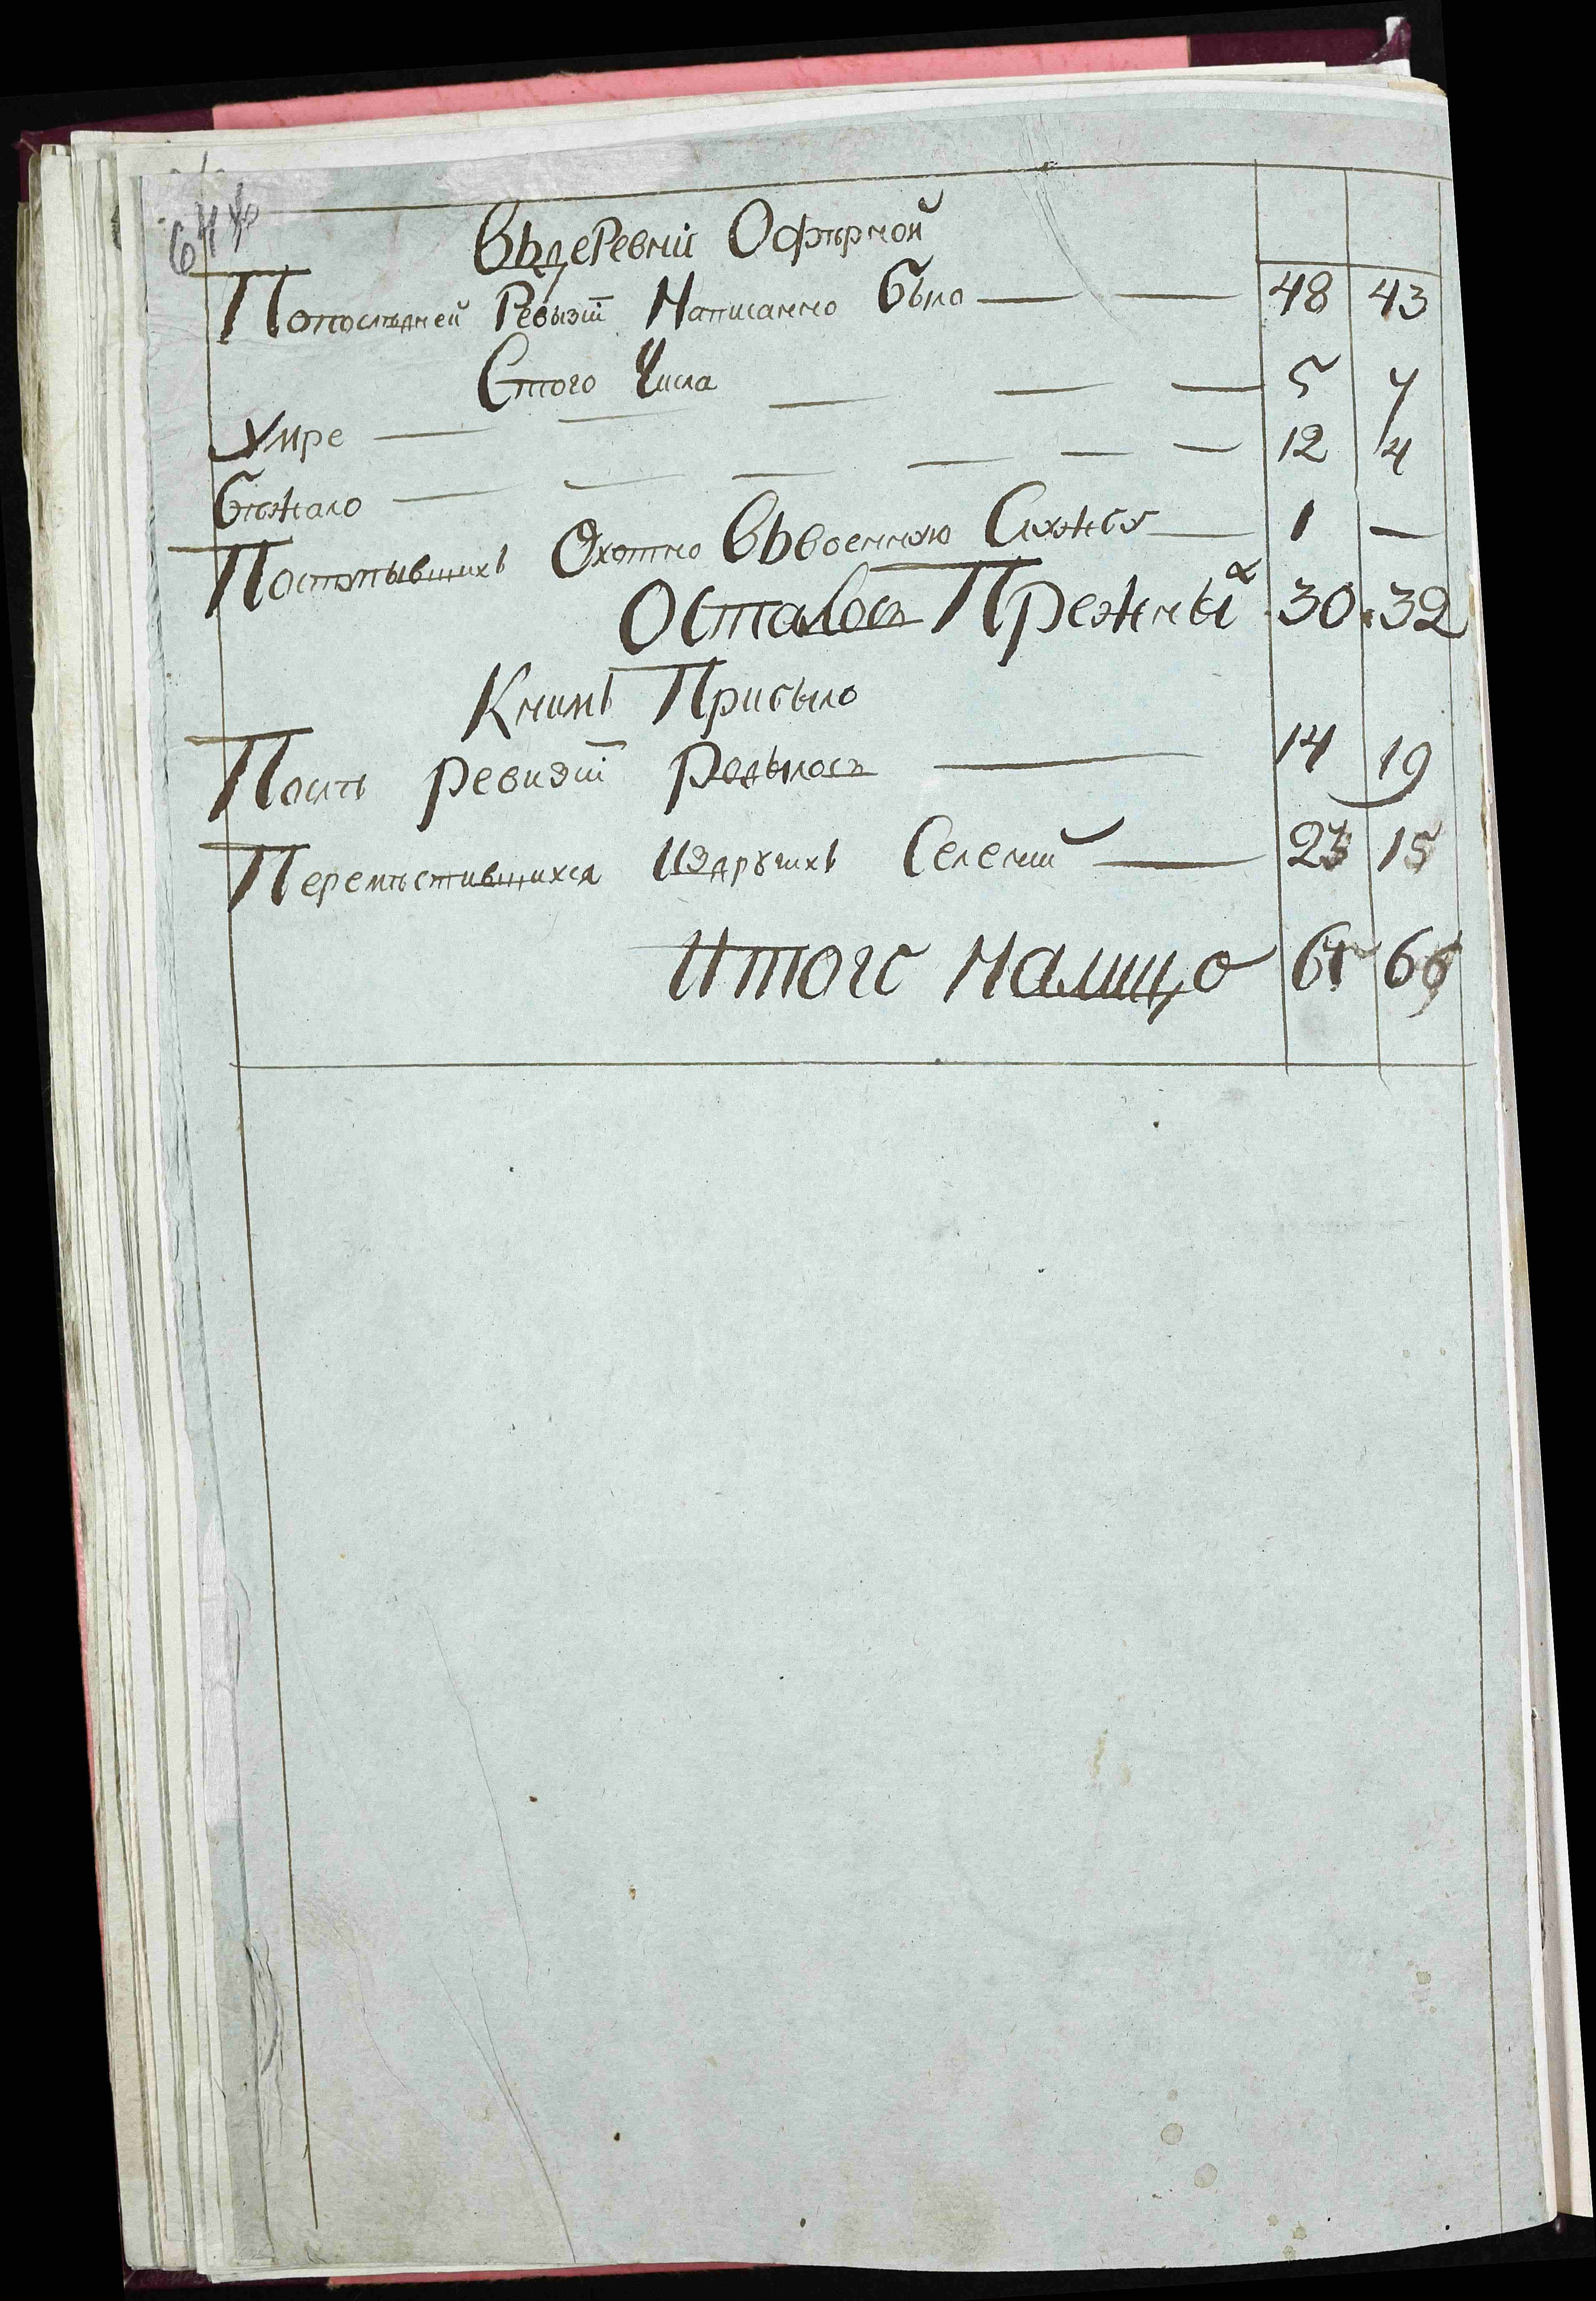 Въдеревнй Офѣрной
Попослѣдней Ревызiй Написанно было — — 48 43
Стого Числа
Умре — — — — — 5 7
Бѣжало — — — — — — 12 4
Поступывшихъ Охотно Въвоенную Службу — 1 —
Осталось Прежныхъ 30. 32
Книмъ Прибыло
Послѣ ревизiй Родылось — 14 19
Перемѣстившихся Издругихъ Селенiй — 23 15
Итого Налицо 66